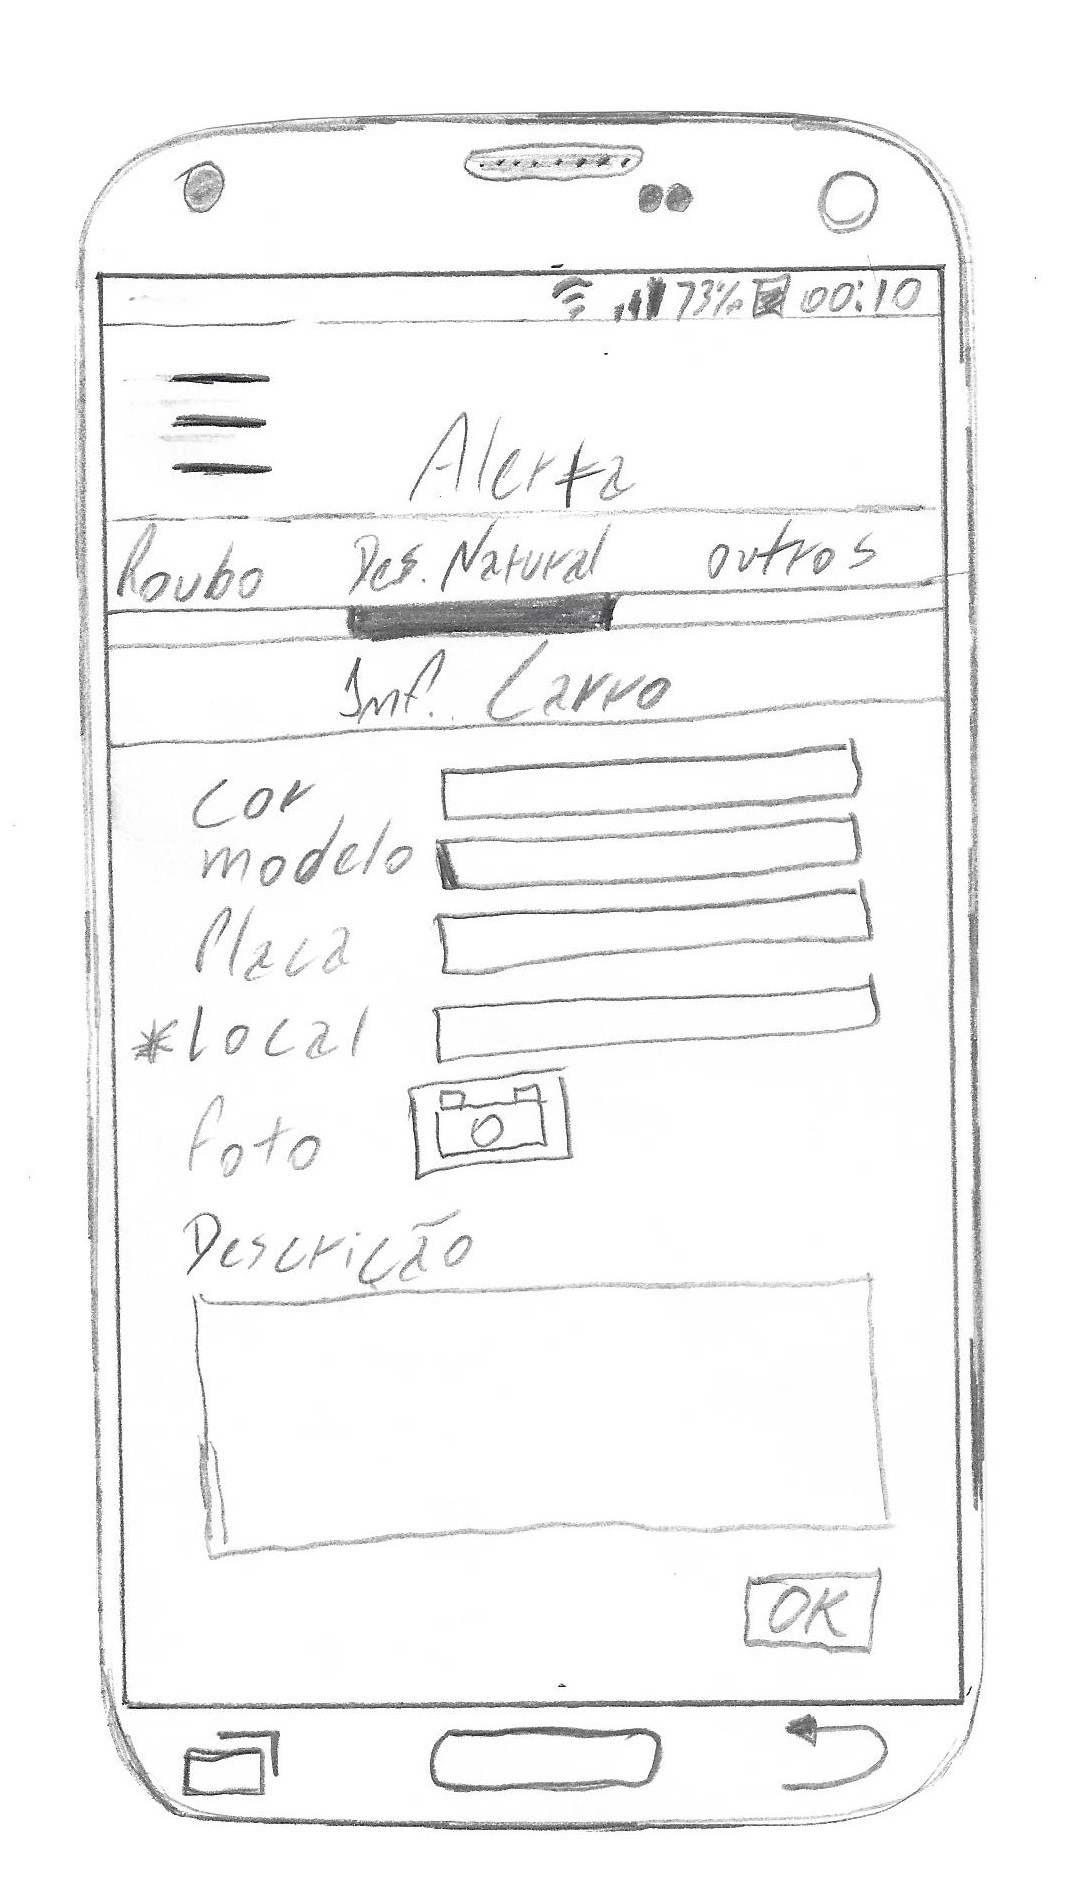 73% 00:10
Alerta
Roubo Des. Natural outros
Inf. Carro
cor
modelo
Placa
*Local
foto
Descrição
OK